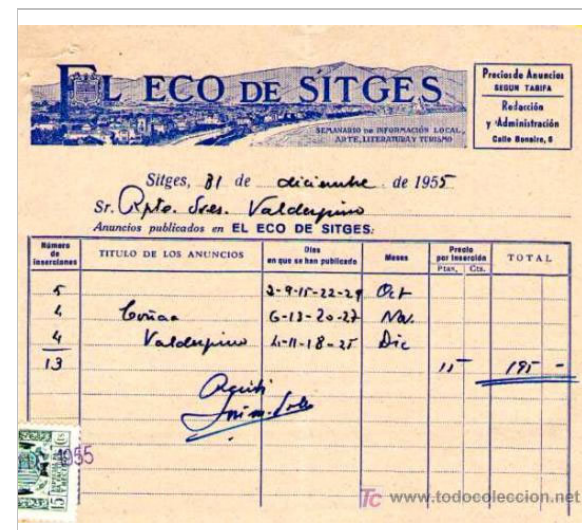 EL ECO DE SITGES
SEMANARIO DE INFORMACIÓN LOCAL,
ARTE, LITERATURA Y TURISMO
Precios de Anuncios
SEGUN TARIFA
Redacción
y Administración
Calle Bonaire, 8
Sitges, 31 de diciembre de 1955
Sr. Rpte. Sres. Valdespino
Anuncios publicados en EL ECO DE SITGES:
Número de inserciones TITULO DE LOS ANUNCIOS Días en que se han publicado Meses Precio por Inserción Ptas. Cts. TOTAL
5 2-9-15-22-29 Oct
4 Coñac 6-13-20-27 Nov.
4 Valdespino 4-11-18-25 Dic
13 15 195 -
Recibí
1955
tc www.todocoleccion.net